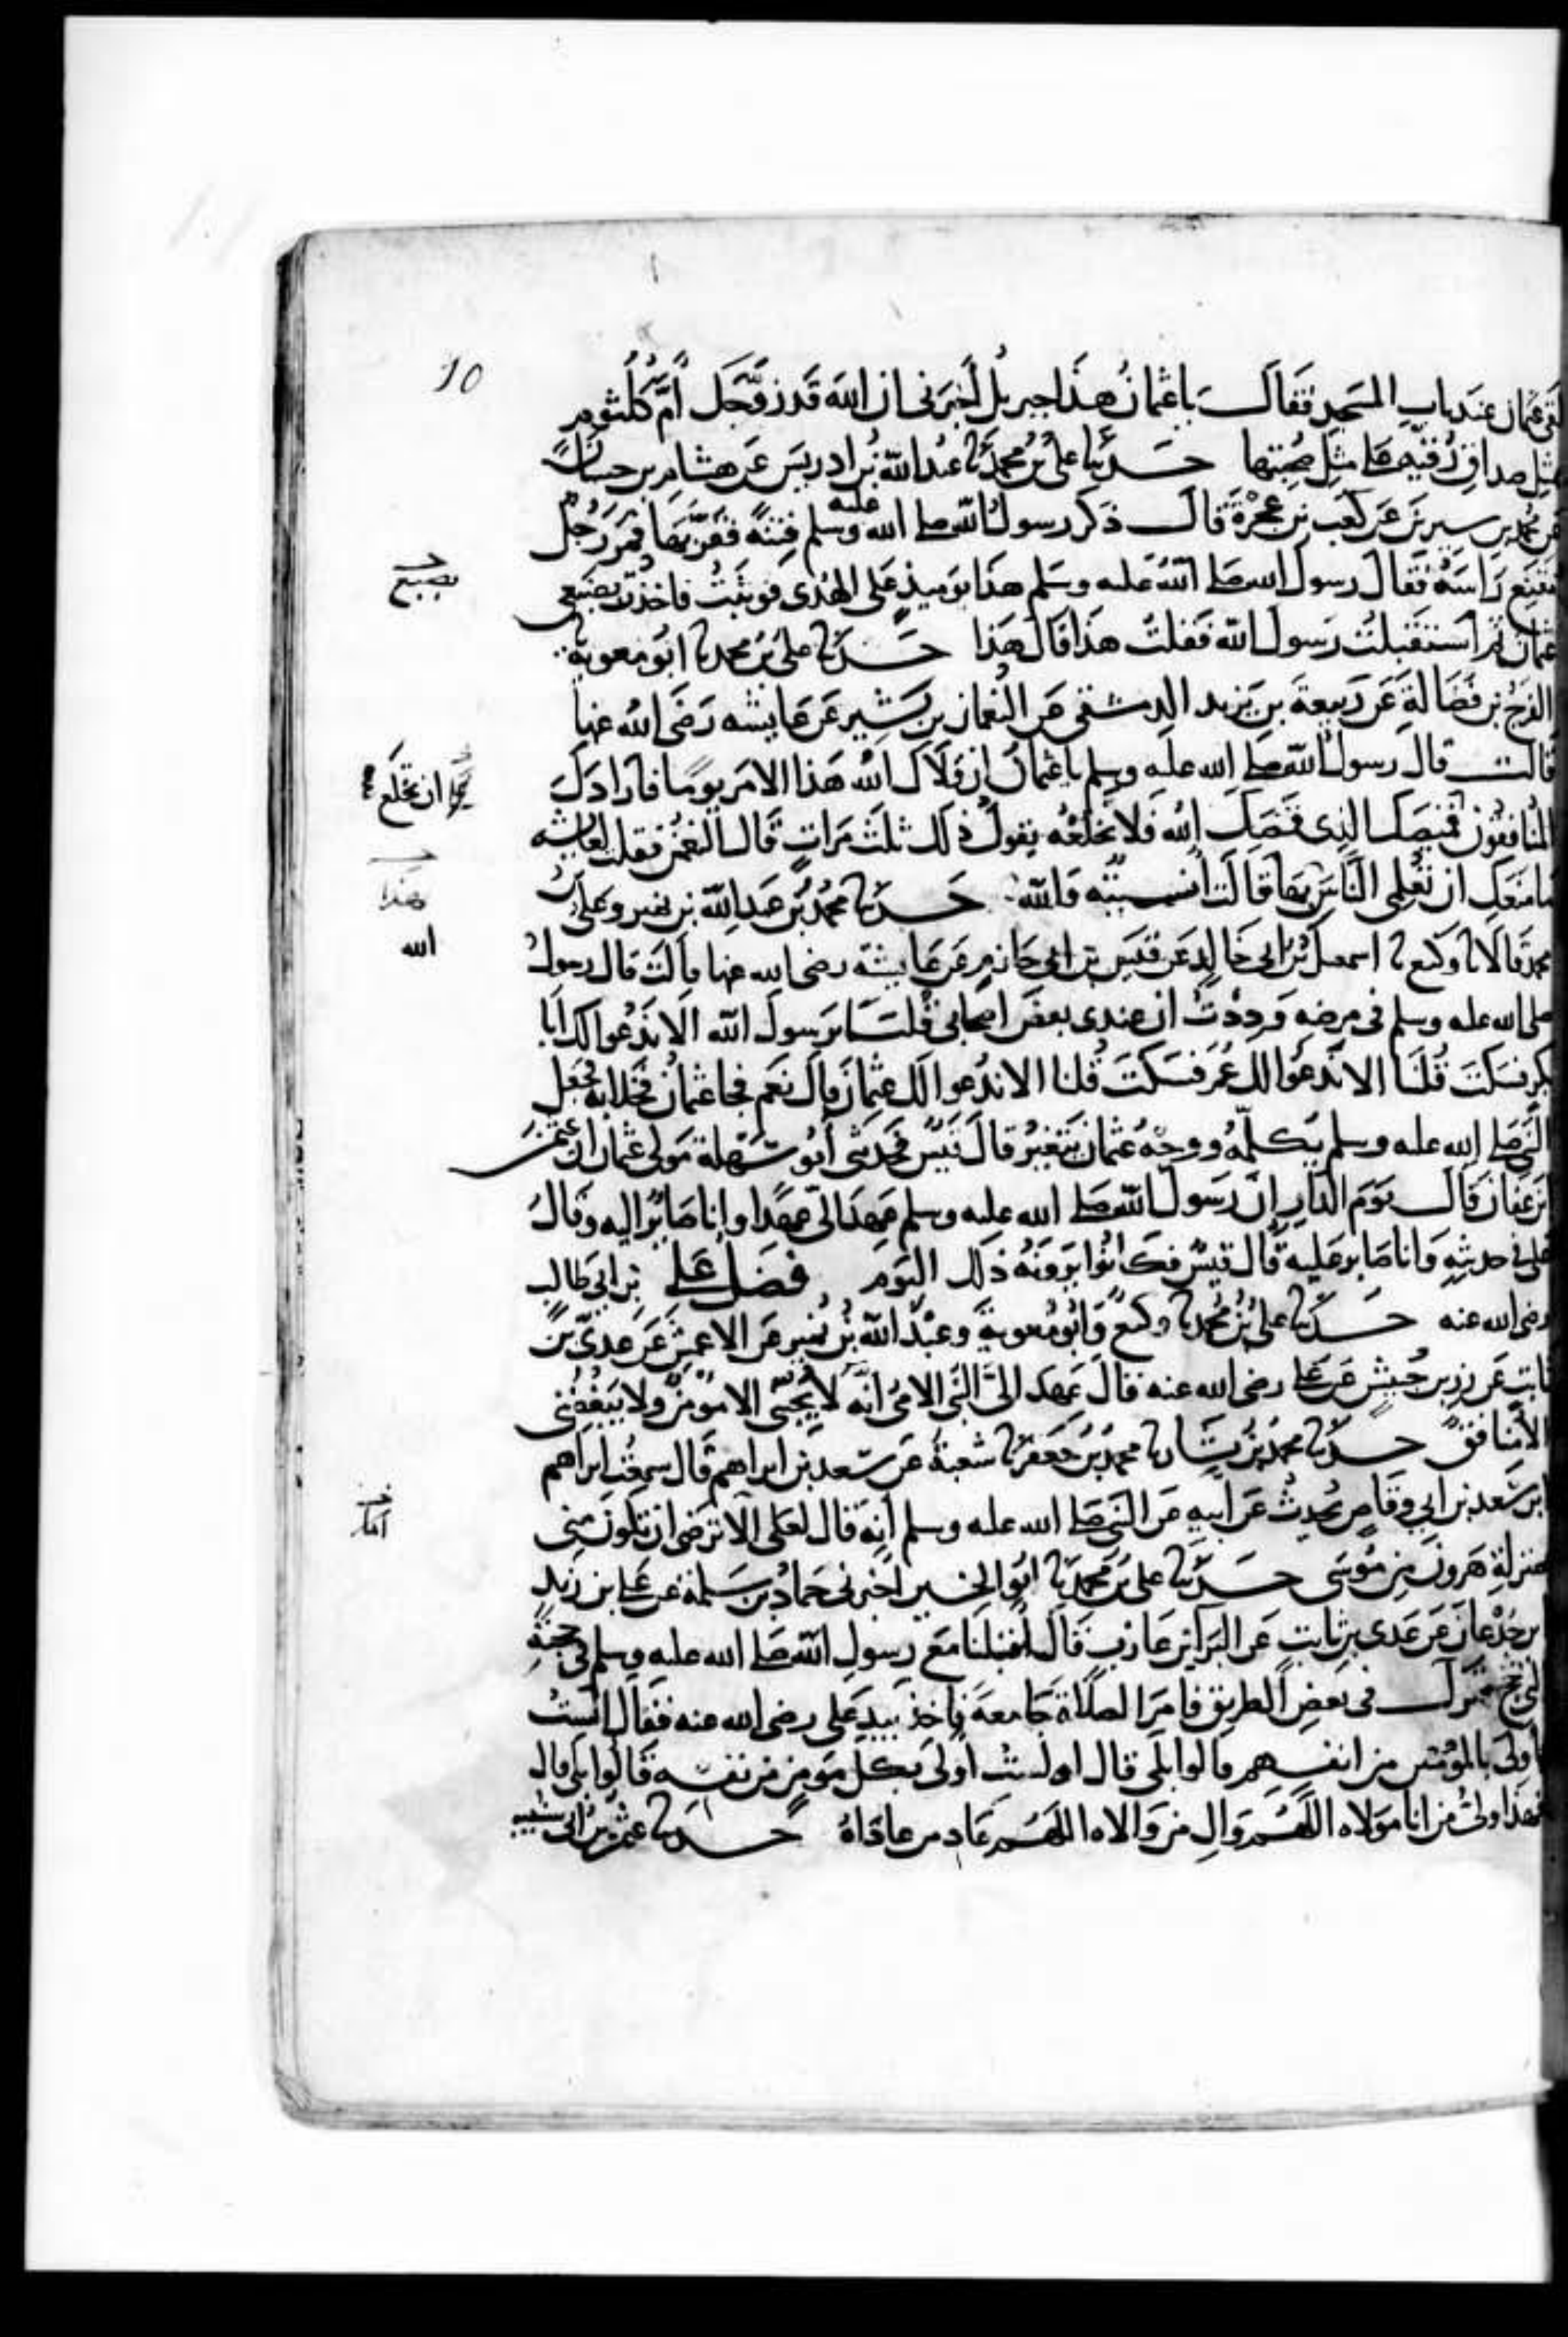 10
لقى عثمان عند باب المسجد فقال يا عثمان هذا جبريل أخبرني ان الله قد زوجك أم كلثوم
بمثل صداق رقية على مثل صحبتها حدثنا علي بن محمد ثنا عبد الله بن ادريس عن هشام بن حسان
عن محمد بن سيرين عن كعب بن عجرة قال ذكر رسول الله صلى الله عليه وسلم فتنة فقربها فمر رجل
مقنع راسه فقال رسول الله صلى الله عليه وسلم هذا يوميذ على الهدى فوثبت فاخذت بضبعي
عثمان ثم استقبلت رسول الله فقلت هذا قال هذا حدثنا علي بن محمد ثنا ابو معوية ثنا
الفرج بن فضالة عن ربيعة بن يزيد الدمشقي عن النعمان بن بشير عن عايشه رضي الله عنها
قالت قال رسول الله صلى الله عليه وسلم يا عثمان ان ولاك الله هذا الامر يوما فارادك
المنافقون قميصك الذي قمصك الله فلا تخلعه يقول ذلك ثلث مرات قال النعمن فقلت لعايشه
ما منعك ان تعلمي الناس بهذا قالت أنسيته والله حدثنا محمد بن عبد الله بن نمير وعلي بن
محمد قالا ثنا وكيع ثنا اسمعيل بن ابي خالد عن قيس بن ابي حازم عن عايشة رضي الله عنها قالت قال رسول
صلى الله عليه وسلم في مرضه وددت ان عندي بعض اصحابي قلنا يرسول الله الا ندعوا لك ابا
بكر فسكت قلنا الا ندعوا لك عمر فسكت قلنا الا ندعوا لك عثمان قال نعم فجا عثمان فخلا به فجعل
النبي صلى الله عليه وسلم يكلمه ووجه عثمان يتغير قال قيس فحدثني أبو سهلة مولى عثمان ان عثمن
بن عفان قال يوم الدار ان رسول الله صلى الله عليه وسلم عهد الي عهدا وانا صاير اليه وقال
علي في حديثه وانا صابر عليه قال قيس فكانوا يرونه ذلك اليوم فضل علي بن ابي طالب
رضي الله عنه حدثنا علي بن محمد ثنا وكيع وابو معوية وعبد الله بن نمير عن الاعمش عن عدي بن
ثابت عن زر بن حبيش عن علي رضي الله عنه قال عهد الي النبي الامي انه لا يحبني الا مومن ولا يبغضني
الا منافق حدثنا محمد بن بشار ثنا محمد بن جعفر ثنا شعبة عن سعد بن ابراهيم قال سمعت ابراهيم
بن سعد بن ابي وقاص يحدث عن أبيه عن النبي صلى الله عليه وسلم أنه قال لعلي الا ترضى ان تكون مني
بمنزلة هرون من موسى حدثنا علي بن محمد ثنا ابو الحسين اخبرني حماد بن سلمة عن علي بن زيد
بن جدعان عن عدي بن ثابت عن البرا بن عازب قال أقبلنا مع رسول الله صلى الله عليه وسلم في حجته
التي حج فنزل في بعض الطريق فامر الصلاة جامعة فاخذ بيد علي رضي الله عنه فقال الست
أولى بالمؤمنين من انفسهم قالوا بلى قال الست أولى بكل مومن من نفسه قالوا بلى قال
فهذا ولي من انا مولاه اللهم وال من والاه اللهم عاد من عاداه حدثنا عثمن بن ابي شيبه
بضبع
ان تخلع
هذا
الله
أما